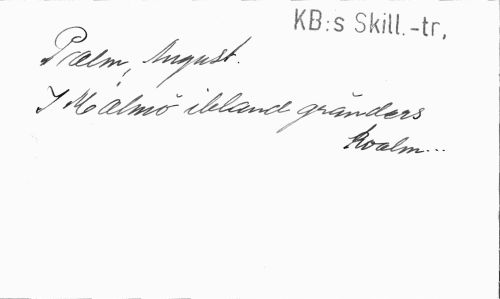 KB:s Skill.-tr.
Psalm, August.
I Malmö ibland gränders
kvalm...